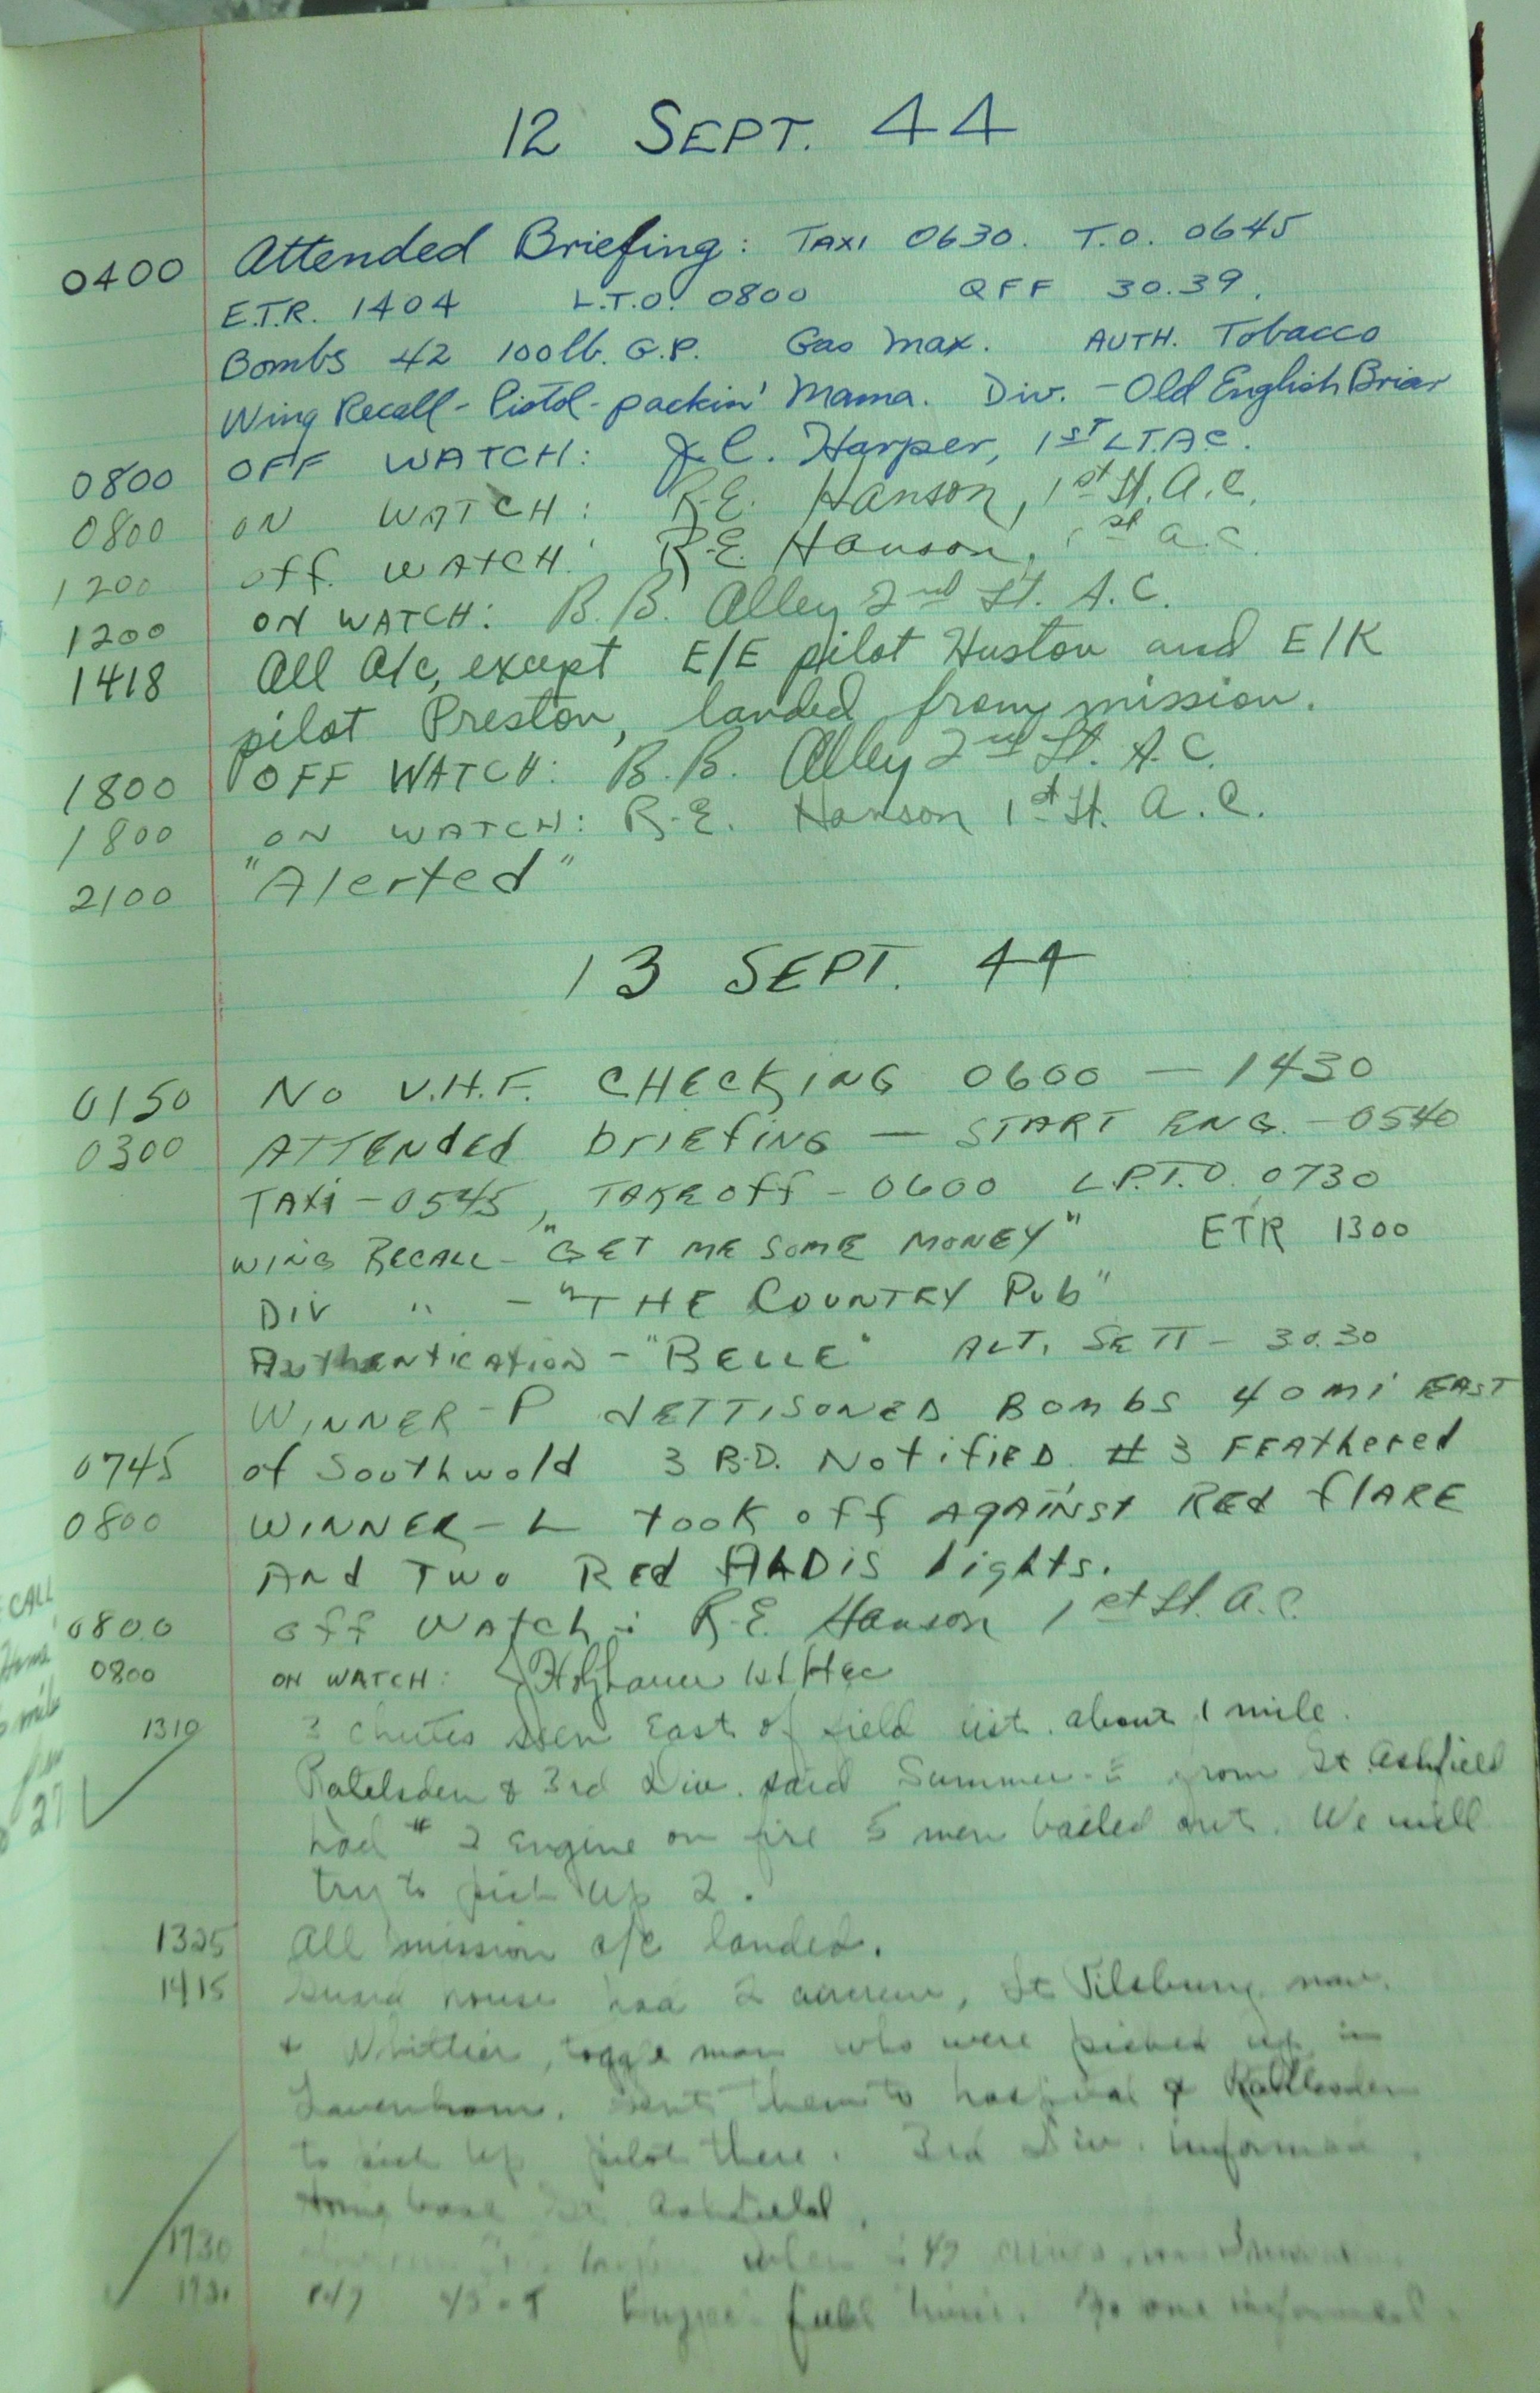 12 SEPT. 44
0400 Attended Briefing: TAXI 0630. T.O. 0645
E.T.R. 1404 L.T.O. 0800 QFF 30.39.
Bombs 42 100lb. G.P. Gas Max. AUTH. Tobacco
Wing Recall - Pistol-packin' Mama. Div. - Old English Briar
0800 OFF WATCH: J.C. Harper, 1ST LT. A.C.
0800 ON WATCH: R.E. Hanson, 1st Lt. A.C.
1200 Off. WATCH: R.E. Hanson, 1st A.C.
1200 ON WATCH: B.B. Alley 2nd Lt. A.C.
1418 All A/c, except E/E pilot Huston and E/K
pilot Preston, landed from mission.
1800 OFF WATCH: B.B. Alley 2nd Lt. A.C.
1800 ON WATCH: R.E. Hanson 1st Lt. A.C.
2100 "Alerted"
13 SEPT. 44
0150 No V.H.F. CHECKING 0600 — 1430
0300 ATTENded briefing — START ENG. - 0540
TAXi - 0545, TAKEoff - 0600 L.P.T.O. 0730
WING RECALL - "GET ME SOME MONEY" ETR 1300
DIV " - "THE COUNTRY Pub"
Authentication - "BELLE" ALT. SETT - 30.30
WINNER - P JETTISONED BOMbS 40 mi EAST
0745 of Southwold 3 B.D. Notified # 3 FEAthered
0800 WINNER - L tooK off AgAiNst REd flARE
ANd Two REd ALDiS lights.
0800 off Watch: R.E. Hanson 1st Lt. A.C.
0800 ON WATCH: 1st Lt ac
1310 3 chutes seen East of field about 1 mile.
& 3rd Div. said Summer from Gt. Ashfield
had # 2 Engine on fire 5 men bailed out. We will
try to pick up 2.
1325 All mission a/c landed.
1415 house had 2
& Whittier, toggle man who were picked up in
Lavenham. Sent them to hospital & Rattlesden
to pick up pilot there. 3rd Div. informed
home base Gt. Ashfield.
1730
CALL
27